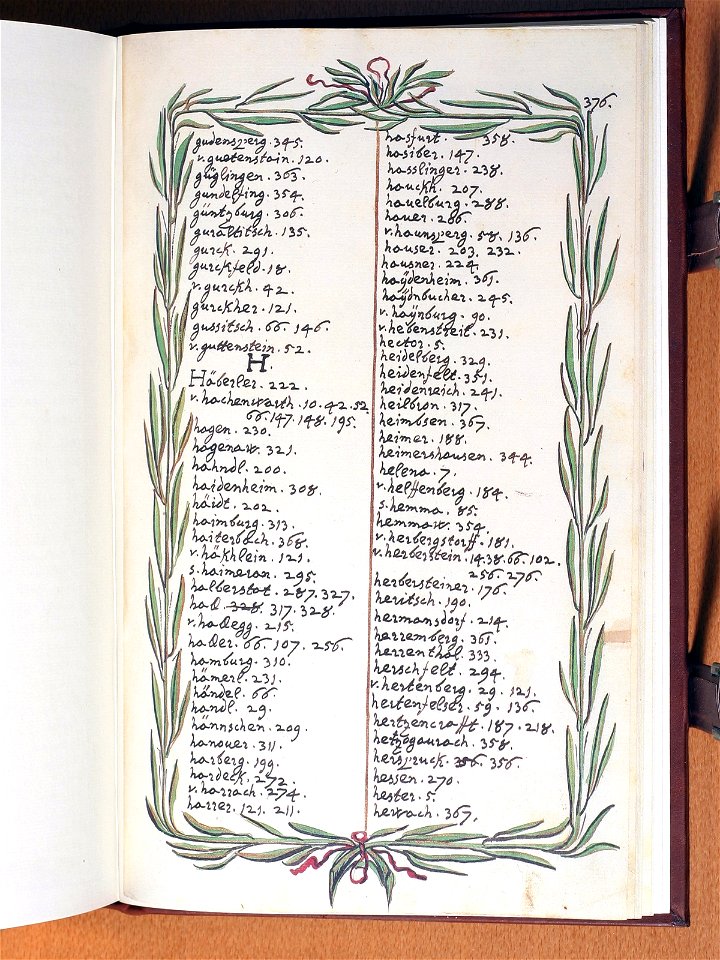 376.
gudensperg. 345.
v. guetenstain. 120.
güglingen. 363.
gundelfing. 354.
güntzburg. 306.
gurältitsch. 135.
gurck. 291.
gurckfeld. 18.
v. gurckh. 42.
gurckher. 121.
gussitsch. 66. 146.
v. guttenstein. 52.
H.
Häberler. 222.
v. hachenwarth. 10. 42. 52
66. 147. 148. 195.
hagen. 230.
hagenaw. 321.
hähndl. 200.
haidenheim. 308.
häidt. 202.
haimburg. 313.
haiterbach. 368.
v. häkhlein. 121.
s. haimeran. 295.
halberstat. 287. 327.
hall. 328. 317. 328.
v. hallegg. 215.
haller. 66. 107. 256.
hamburg. 310.
hämerl. 231.
händel. 66.
handl. 29.
hännschen. 209.
hanouer. 311.
harberg. 199.
hardeck. 272.
v. harrach. 274.
harrer. 121. 211.
hasfurt. 358.
hasiber. 147.
hasslinger. 238.
hauckh. 207.
hauelburg. 288.
hauer. 286.
v. haunsperg. 58. 136.
hauser. 203. 232.
hausner. 224.
haÿdenheim. 361.
haÿdnbucher. 245.
v. haÿnburg. 90.
v. hebenstreit. 231.
hector. 5.
heidelberg. 329.
heidenfelt. 351.
heidenreich. 241.
heilbron. 317.
heimbsen. 367.
heimer. 188.
heimershausen. 344.
helena. 7.
v. helffenberg. 184.
s. hemma. 85.
hemmaw. 354.
v. herbergstorff. 181.
v. herberstein. 14. 38. 66. 102.
256. 276.
herbersteiner. 176.
heritsch. 190.
hermansdorf. 214.
harremberg. 361.
herrenthal. 333.
herschfelt. 294.
v. hertenberg. 29. 121.
hertenfelser. 59. 136.
hertzencrafft. 187. 218.
hetzogaurach. 358.
herspruck. 356. 356.
hessen. 270.
hester. 5.
hewach. 367.